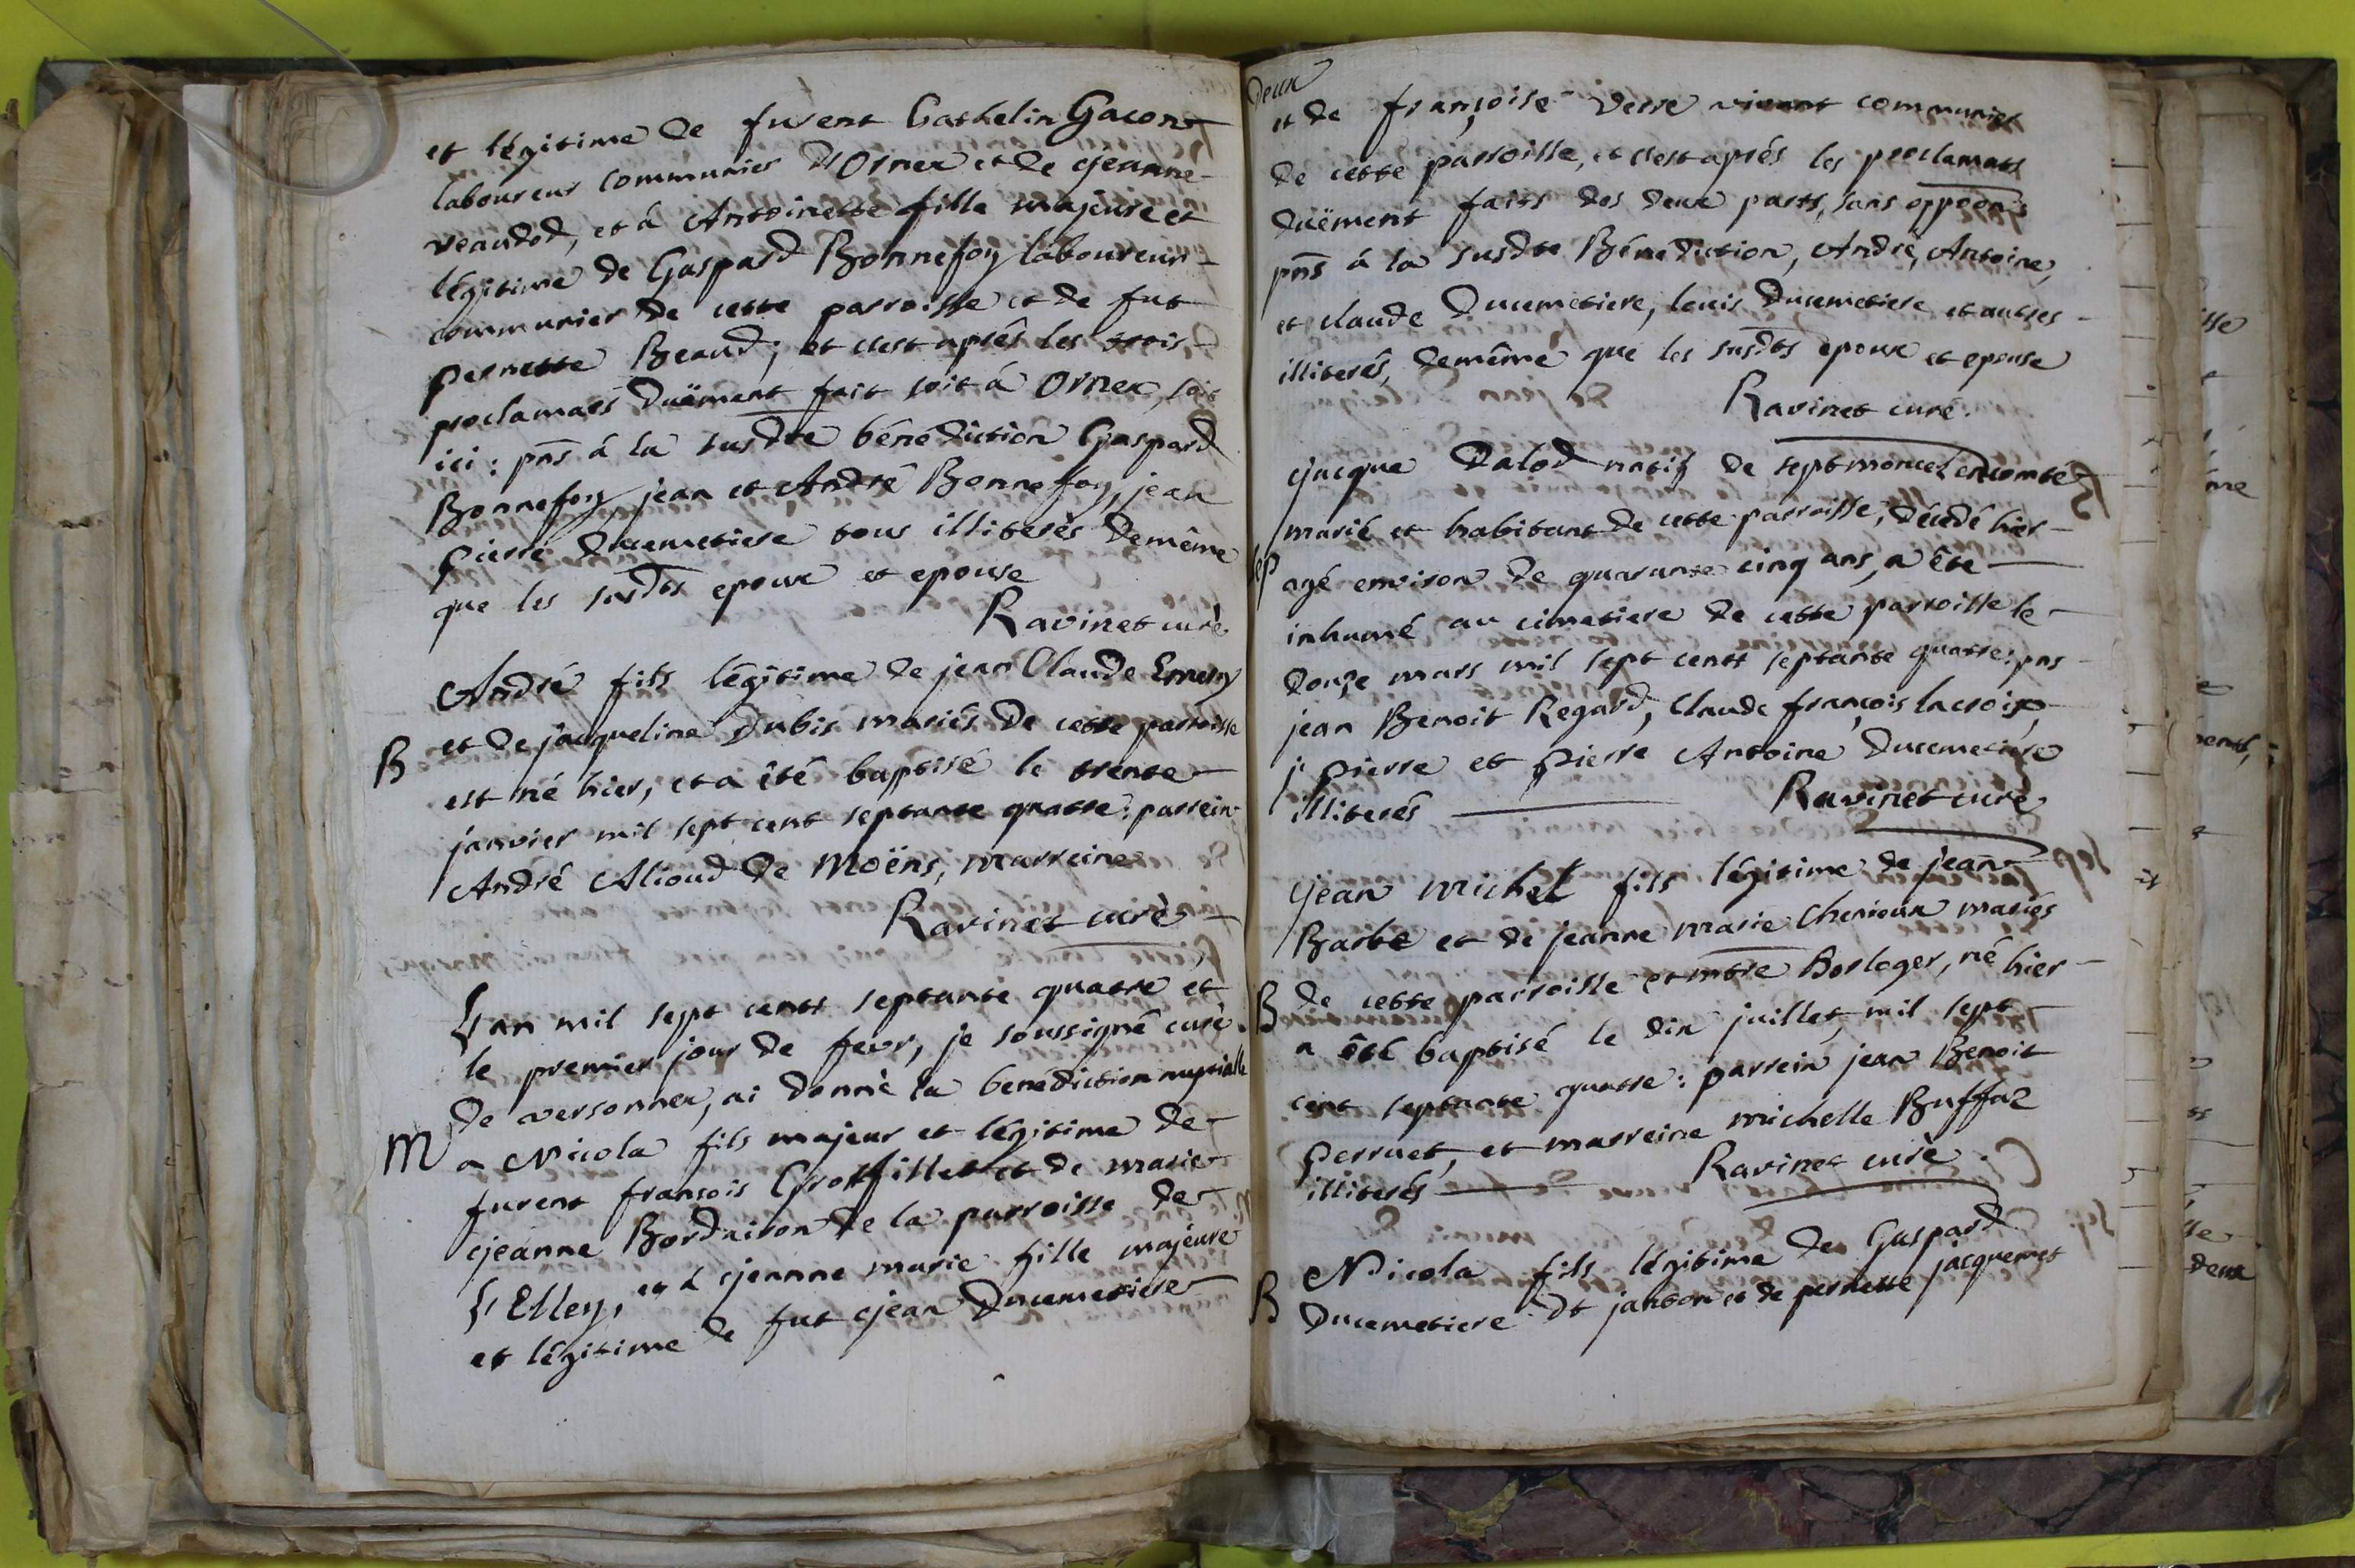 et légitime de furent Cathelin Gacon
laboureur communier d'Ornex et de Jeanne
veaudod, et à Antoinette fille majeure et
légitime de Gaspard Bonnefoy laboureur
communier de cette parroisse et de fut
pernette Beaud; et c'est aprés les trois
proclamats duëment fait soit à Ornex, soit
ici: pns à la susdte bénédiction Gaspard
Bonnefoy jean et André Bonnefoy, jean
pierre Ducimetiere tous illiterés demême
que les susdts epoux et epouse
Ravinet curé
André fils légitime de jean Claude Emery
B et de jacqueline Dubis mariés de cette parroisse
est né hier, et a été baptisé le trente
janvier mil sept cent septante quatre: parrein
André Alioud de Moëns, marreine
Ravinet curé
L'an mil sept cent septante quatre et
le premier jour de fevr, je soussigné curé
de versonnex, ai donné la benédiction nuptialle
M a Nicola fils majeur et légitime de
furent françois Grosfillet et de marie
Jeanne Bordairon de la parroisse de
L'Elley, et à Jeanne marie fille majeure
et légitime de fut Jean Ducimetiere
Deux
et de françoise verre vivant communier
de cette parroisse, et c'est aprés les proclamats
duëment faits des deux parts, sans oppoõn:
pns à la susdte Bénédiction, André, Antoine,
et claude Ducimetiere, louis Ducimetiere et autres
illiterés, demême que les susdts epoux et epouse
Ravinet curé.
Jacque Dalod natif de septmoncel en comté
marié et habitant de cette parroisse, décédé hier
sep agé environ de quarante cinq ans, a été
inhumé au cimetiere de cette parroisse le
douze mars mil sept cent septante quatre: pns
jean Benoit Regard, Claude françois lacroix,
j: pierre et pierre Antoine Ducemetiere
illiterés Ravinet curé
Jean michel fils légitime de jean
Barbe et de jeanne marie Cherioux mariés
B de cette parroisse et mtre Horloger, né hier
a été baptisé le dix juillet mil sept
cent septante quatre: parrein jean Benoit
perruet, et marreine michelle Buffaz
illiterés Ravinet curé.
Nicola fils légitime de Gaspard
B Ducemetiere dt janton et de pernette jacquemet